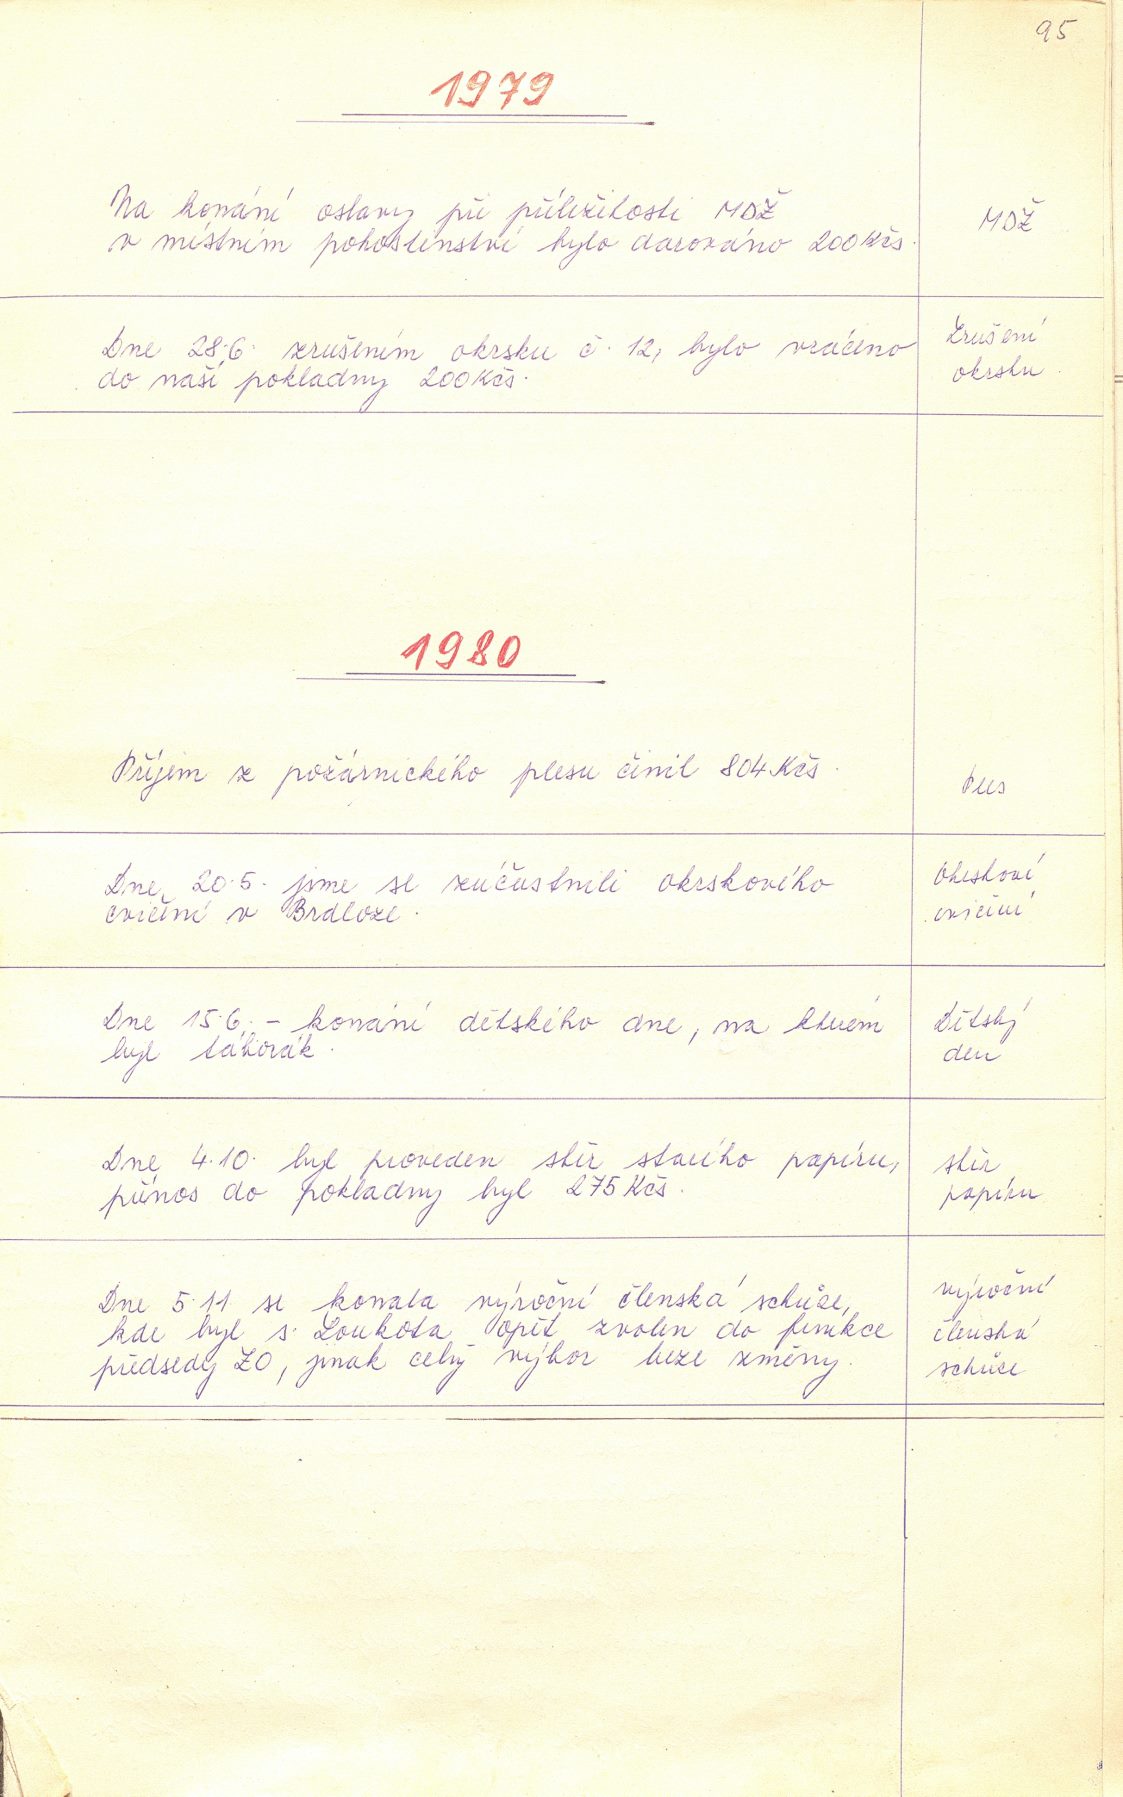 95
1979
Na konání oslavy při příležitosti MDŽ
v místním pohostinství bylo darováno 200 Kčs.
MDŽ
Dne 28.6. zrušením okrsku č. 12, bylo vráceno
do naší pokladny 200 Kčs.
Zrušení
okrsku.
1980
Příjem z požárnického plesu činil 804 Kčs.
Ples
Dne 20.5. jsme se zúčastnili okrskového
cvičení v Brdloze.
Okrskové
cvičení
Dne 15.6. – konání dětského dne, na kterém
byl táborák.
Dětský
den
Dne 4.10. byl proveden sběr starého papíru,
přínos do pokladny byl 275 Kčs.
sběr
papíru
Dne 5.11 se konala výroční členská schůze,
kde byl s. Loukota opět zvolen do funkce
předsedy ZO, jinak celý výbor beze změny.
výroční
členská
schůze